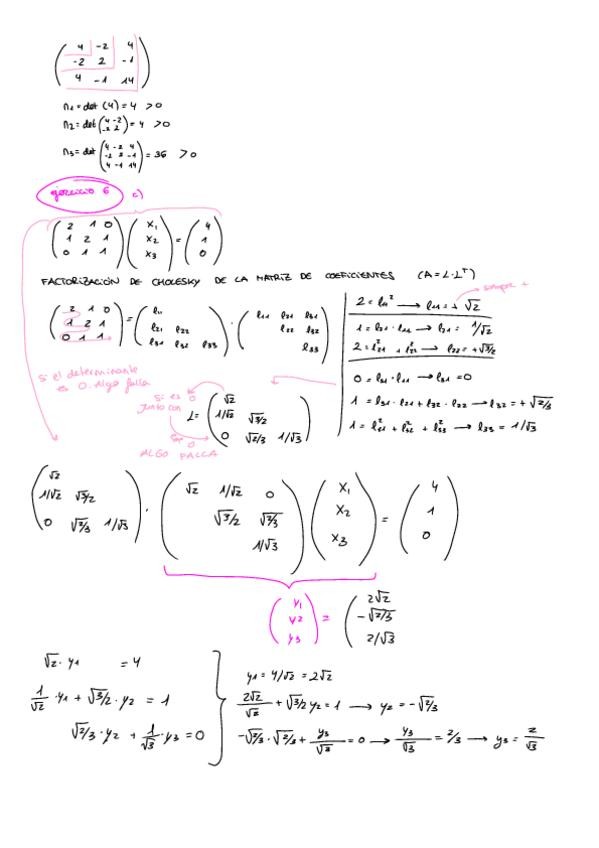 ( 4 -2 4
-2 2 -1
4 -1 14 )
n1 = det (4) = 4 > 0
n2 = det ( 4 -2
-2 2 ) = 4 > 0
n3 = det ( 4 -2 4
-2 2 -1
4 -1 14 ) = 36 > 0
ejercicio 6 c)
( 2 1 0
1 2 1
0 1 1 ) ( x1
x2
x3 ) = ( 4
1
0 )
FACTORIZACIÓN DE CHOLESKY DE LA MATRIZ DE COEFICIENTES (A = L · L^T)
siempre +
( 2 1 0
1 2 1
0 1 1 ) = ( l11
l21 l22
l31 l32 l33 ) · ( l11 l21 l31
l22 l32
l33 )
2 = l11² → l11 = + √2
1 = l21 · l11 → l21 = 1/√2
2 = l21² + l22² → l22 = +√3/2
0 = l31 · l11 → l31 = 0
1 = l31 · l21 + l32 · l22 → l32 = + √2/3
1 = l31² + l32² + l33² → l33 = 1/√3
Si el determinante
es 0. Algo falla
Si es 0
junto con
0
ALGO FALLA
L = ( √2
1/√2 √3/2
0 √2/3 1/√3 )
( √2
1/√2 √3/2
0 √2/3 1/√3 ) · ( √2 1/√2 0
√3/2 √2/3
1/√3 ) ( x1
x2
x3 ) = ( 4
1
0 )
( y1
y2
y3 ) = ( 2√2
-√2/3
2/√3 )
√2 · y1 = 4
1/√2 · y1 + √3/2 · y2 = 1
√2/3 · y2 + 1/√3 · y3 = 0
y1 = 4/√2 = 2√2
2√2/√2 + √3/2 y2 = 1 → y2 = -√2/3
-√2/3 · √2/3 + y3/√3 = 0 → y3/√3 = 2/3 → y3 = 2/√3